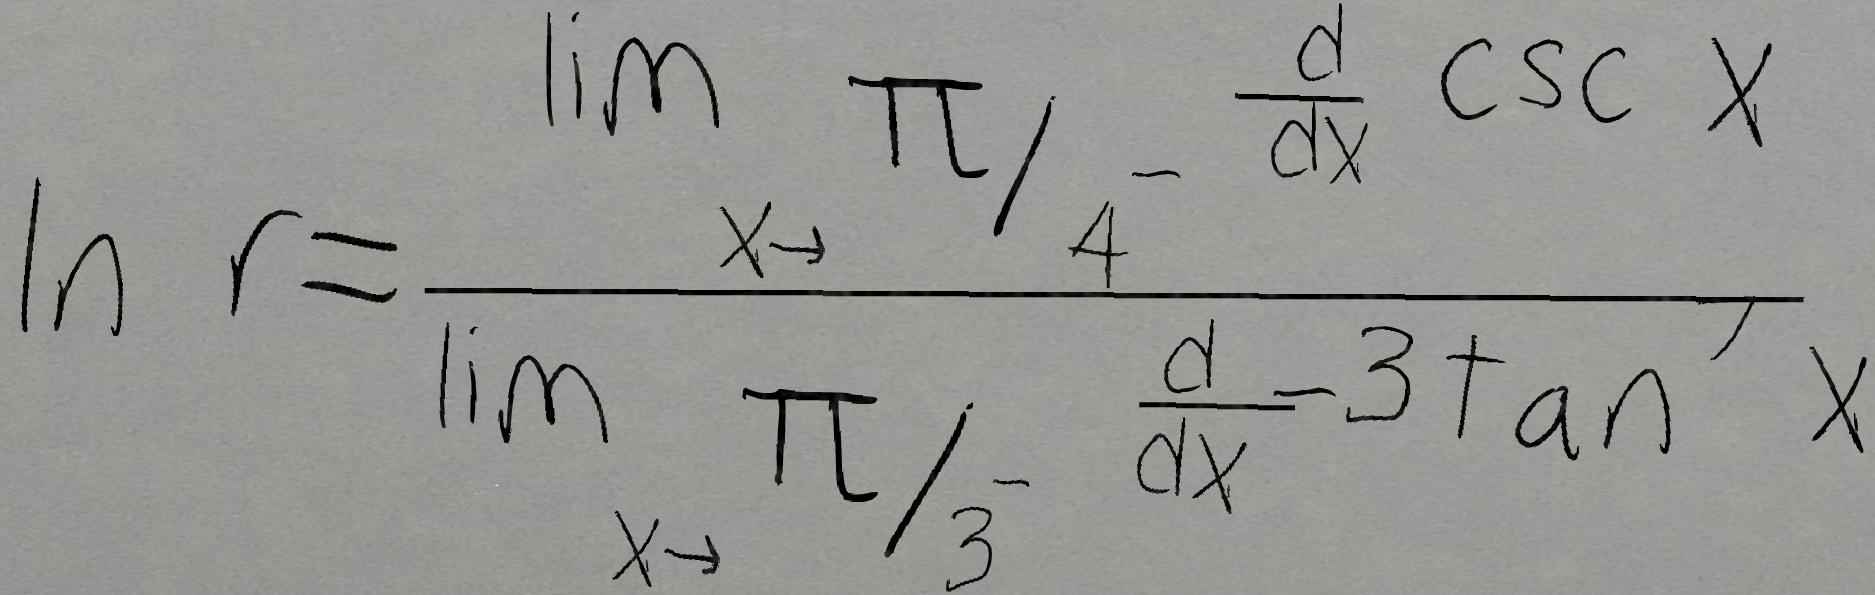 \ln r = \frac{\lim_{x \to \pi/4^-} \frac{d}{dx} \csc x}{\lim_{x \to \pi/3^-} \frac{d}{dx} -3 \tan^{-1} x}